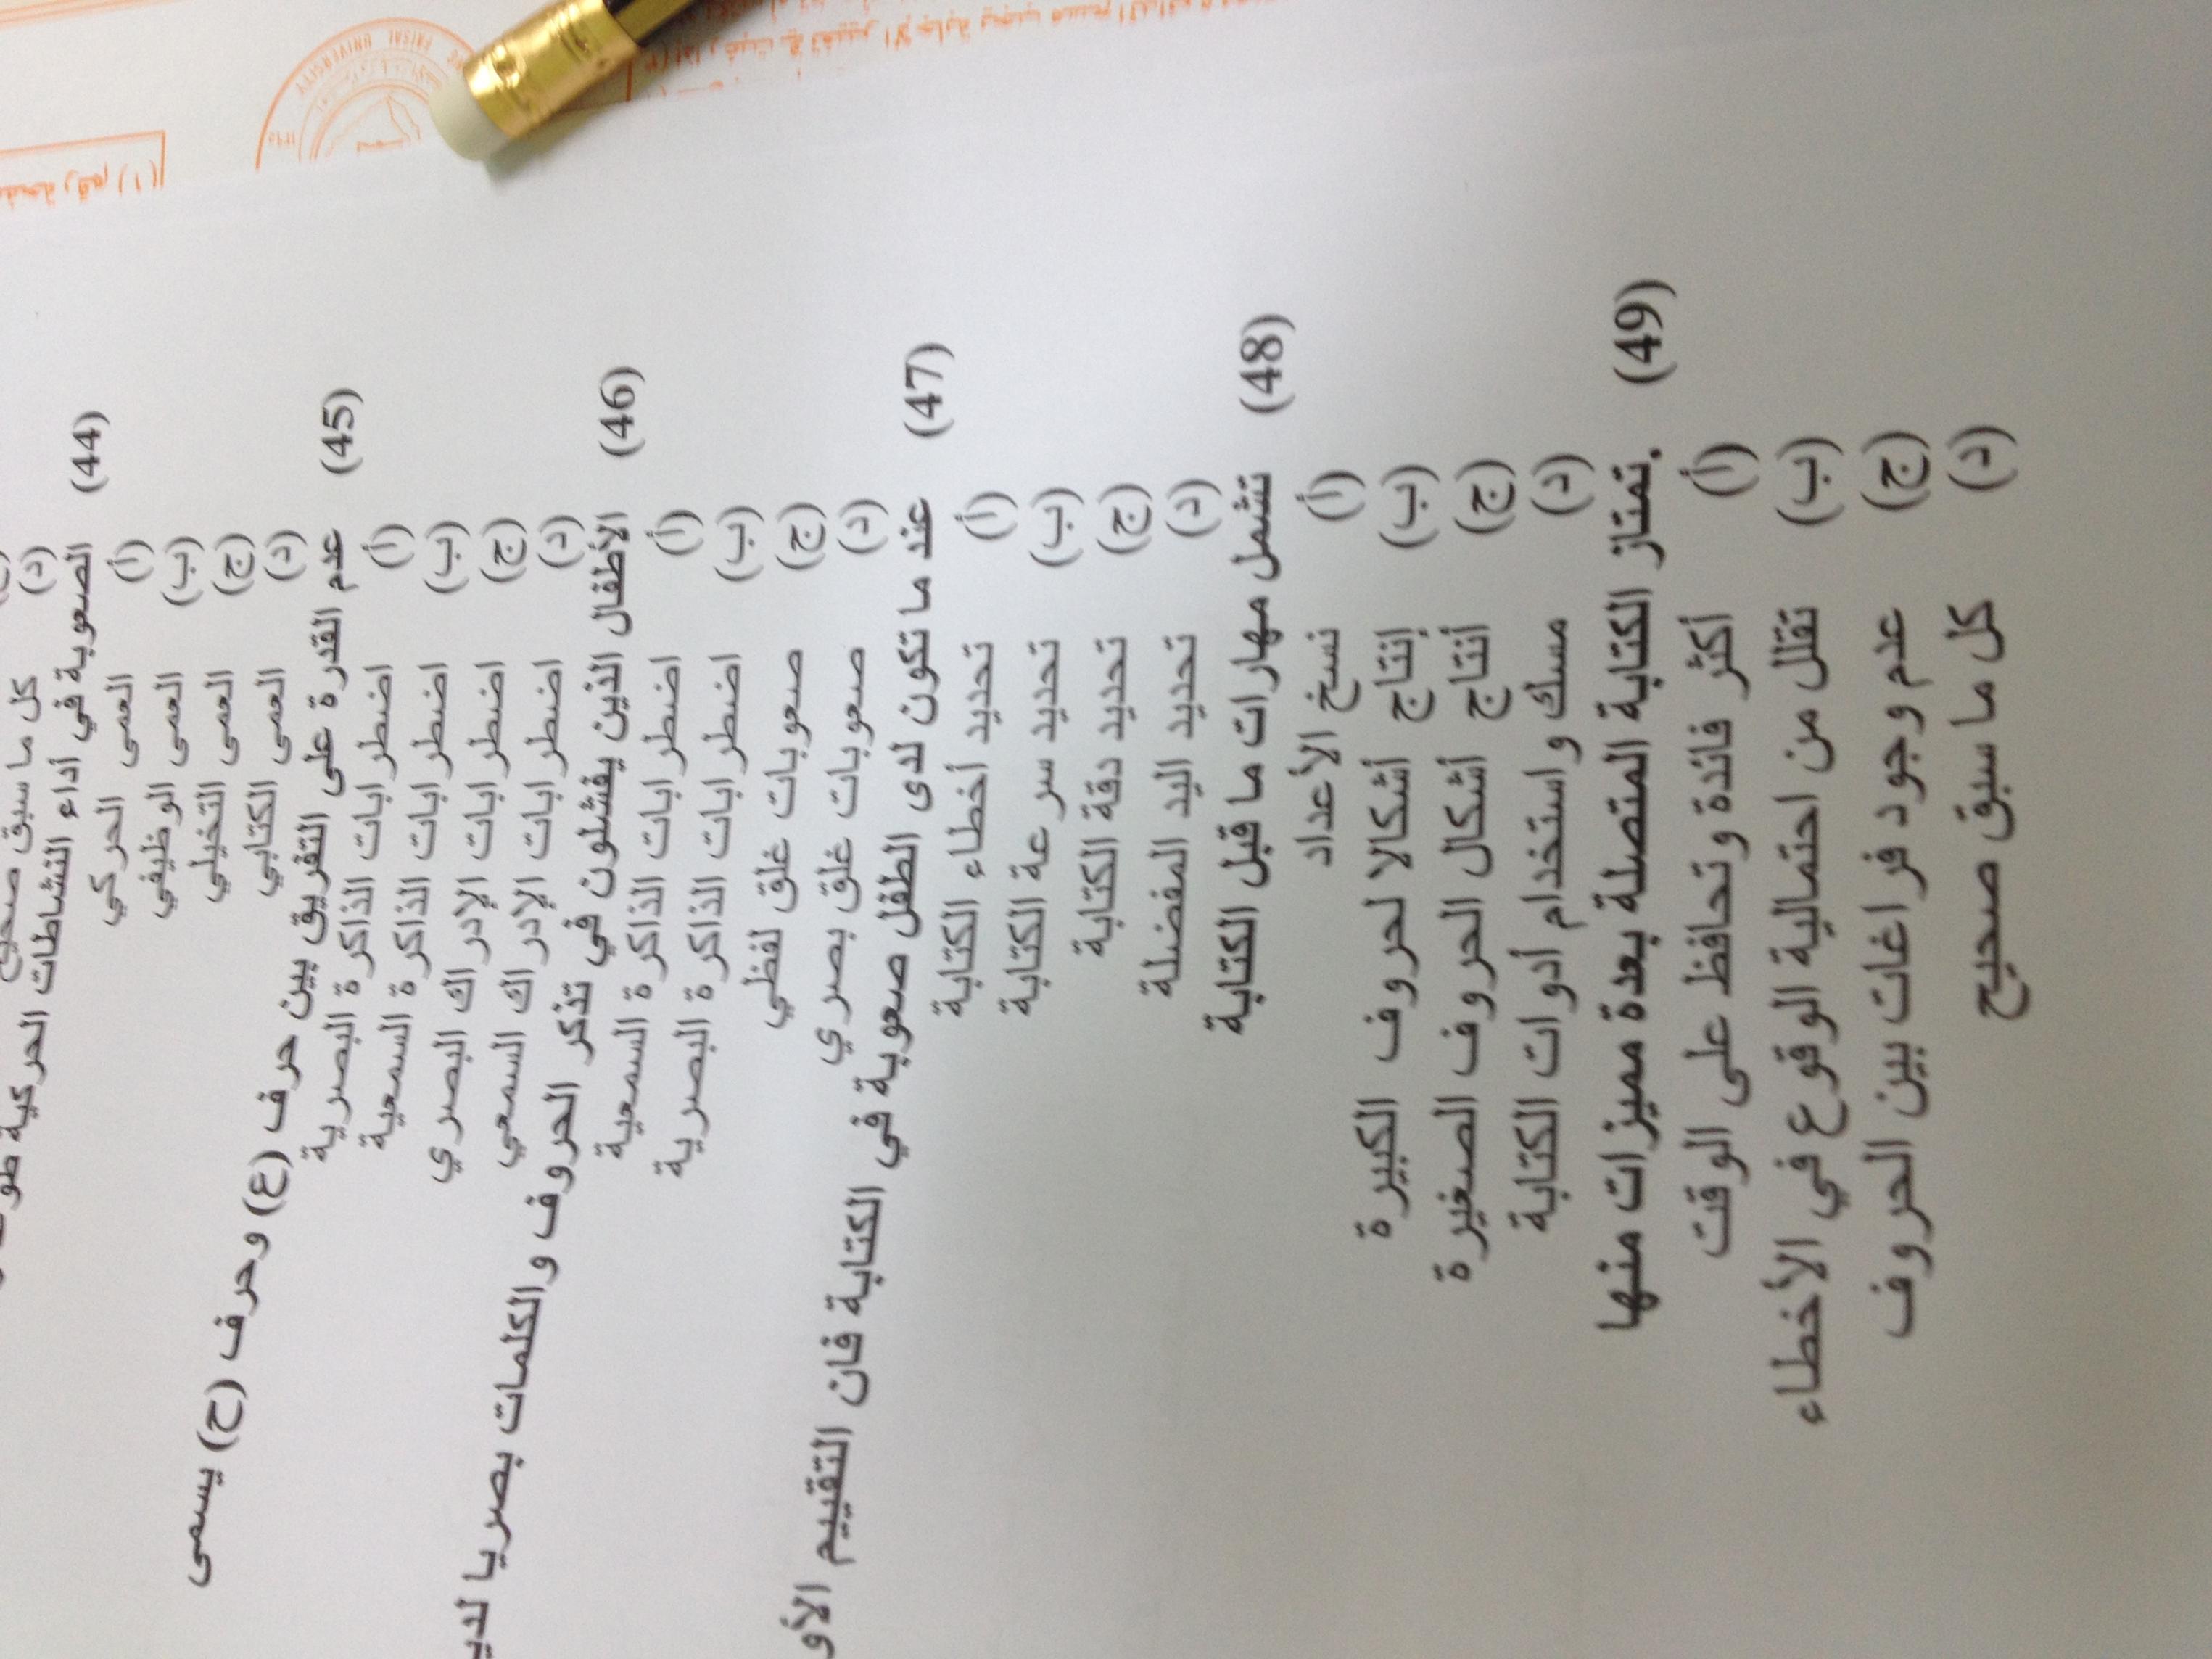 كل ما سبق صحيح (د)
(44) الصعوبة في أداء النشاطات الحركية
(أ) العمى الحركي
(ب) العمى الوظيفي
(ج) العمى التخيلي
(د) العمى الكتابي
(45) عدم القدرة على التفريق بين حرف (ع) وحرف (ح) يسمى
(أ) اضطرابات الذاكرة البصرية
(ب) اضطرابات الذاكرة السمعية
(ج) اضطرابات الإدراك البصري
(د) اضطرابات الإدراك السمعي
(46) الأطفال الذين يفشلون في تذكر الحروف والكلمات بصريا
(أ) اضطرابات الذاكرة السمعية
(ب) اضطرابات الذاكرة البصرية
(ج) صعوبات غلق لفظي
(د) صعوبات غلق بصري
(47) عند ما تكون لدى الطفل صعوبة في الكتابة فان التقييم
(أ) تحديد أخطاء الكتابة
(ب) تحديد سرعة الكتابة
(ج) تحديد دقة الكتابة
(د) تحديد اليد المفضلة
(48) تشمل مهارات ما قبل الكتابة
(أ) نسخ الأعداد
(ب) إنتاج أشكالا لحروف الكبيرة
(ج) أنتاج أشكال الحروف الصغيرة
(د) مسك واستخدام أدوات الكتابة
(49) .تمتاز الكتابة المتصلة بعدة مميزات منها
(أ) أكثر فائدة وتحافظ على الوقت
(ب) تقلل من احتمالية الوقوع في الأخطاء
(ج) عدم وجود فراغات بين الحروف
(د) كل ما سبق صحيح